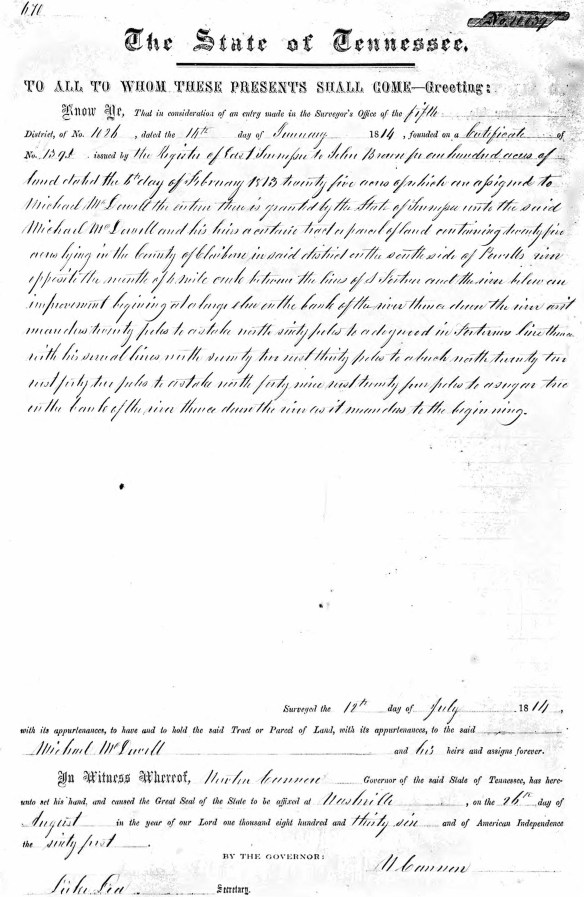 670
The State of Tennessee.
TO ALL TO WHOM THESE PRESENTS SHALL COME—Greeting:
Know Ye, That in consideration of an entry made in the Surveyor's Office of the fifth
District, of No. 1126, dated the 14th day of January 1814, founded on a Certificate of
No. issued by the Register of East Tennessee to John Brown for one hundred acres of
land dated the 8th day of February 1813 twenty five acres of which are assigned to
Michael McDowell the enterer there is granted by the State of Tennessee unto the said
Michael McDowell and his heirs a certain tract or parcel of land containing twenty five
acres lying in the County of Claiborne in said district on the south side of Powells river
opposite the mouth of 4 mile creek between the lines of S and the river below an
improvement begining at a large elm on the bank of the river thence down the river as it
meanders twenty poles to a stake north sixty poles to a dogwood in line thence
with his several lines north seventy two west thirty poles to a buck north twenty two
west forty two poles to a stake north forty nine west twenty four poles to a sugar tree
on the bank of the river thence down the river as it meanders to the beginning.
Surveyed the 12th day of July 1814,
with its appurtenances, to have and to hold the said Tract or Parcel of Land, with its appurtenances, to the said
Michael McDowell and his heirs and assigns forever.
In Witness Whereof, Newton Cannon Governor of the said State of Tennessee, has here-
unto set his hand, and caused the Great Seal of the State to be affixed at Nashville, on the 26th day of
August in the year of our Lord one thousand eight hundred and thirty six and of American Independence
the sixty first.
BY THE GOVERNOR:
N Cannon
Luke Lea Secretary.